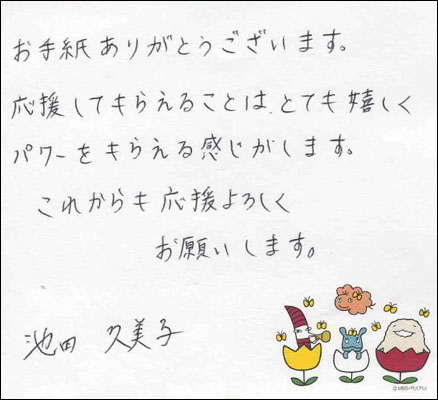 お手紙ありがとうございます。
応援してもらえることは、とても嬉しく
パワーをもらえる感じがします。
これからも応援よろしく
お願いします。
池田 久美子